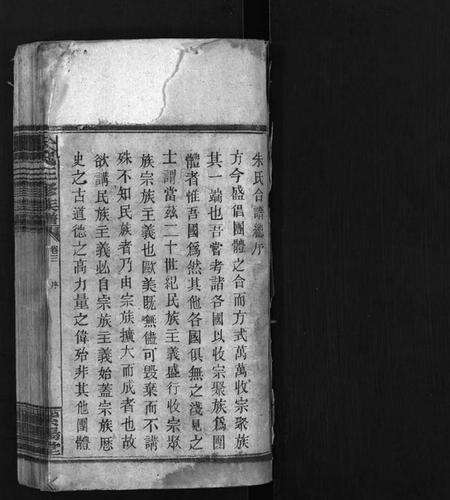 朱氏合譜總序
方今盛倡團體之合而方式萬萬收宗聚族
其一端也吾嘗考諸各國以收宗聚族爲團
體者惟吾國爲然其他各國俱無之淺見之
士謂當茲二十世紀民族主義盛行收宗聚
族宗族主義也歐美既無儘可毀棄而不講
殊不知民族者乃由宗族擴大而成者也故
欲講民族主義必自宗族主義始蓋宗族歷
史之古道德之高力量之偉殆非其他團體
卷二
序